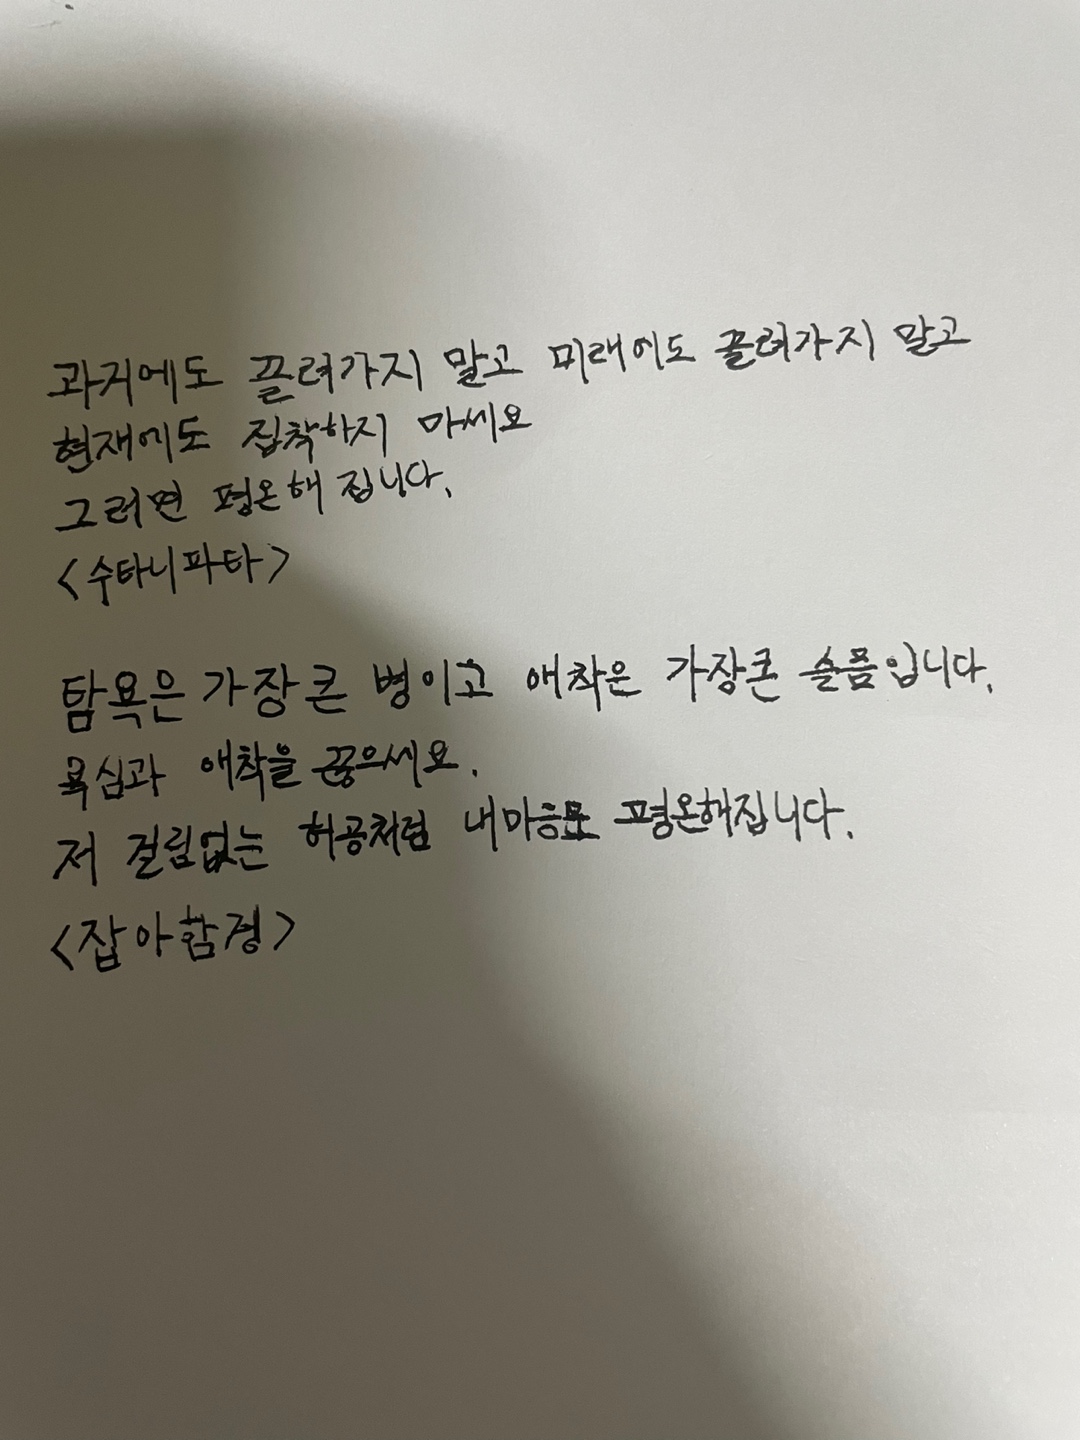 과거에도 끌려가지 말고 미래에도 끌려가지 말고
현재에도 집착하지 마세요
그러면 평온해 집니다.
<수타니파타>
탐욕은 가장큰 병이고 애착은 가장큰 슬픔입니다.
욕심과 애착을 끊으세요.
저 걸림없는 허공처럼 내마음도 평온해집니다.
<잡아함경>